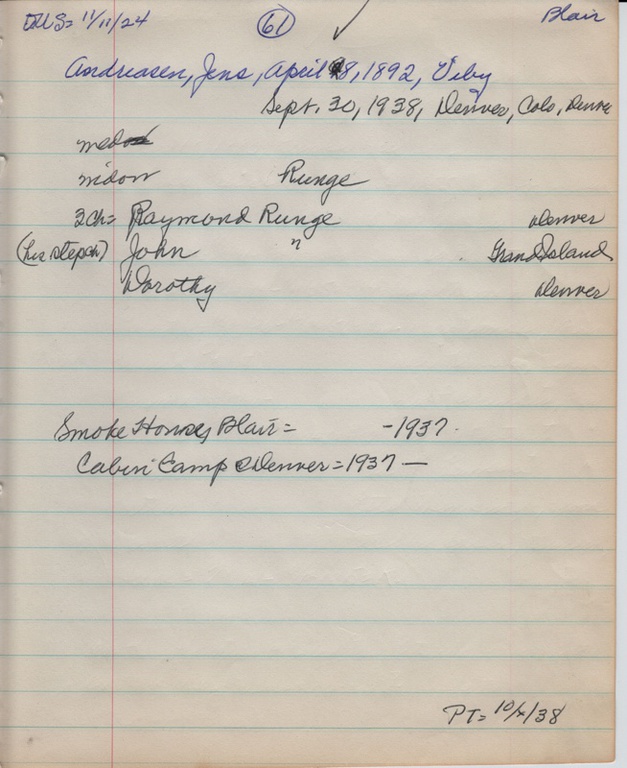 DUS= 11/11/24 61 Blair
Andreasen, Jens, April 8, 1892, Viby
Sept. 30, 1938, Denver, Colo, Denve
med
widow Runge
3ch= Raymond Runge Denver
(his stepch) John " Grand Island
Dorothy Denver
Smoke House, Blair= -1937.
Cabin Camp Denver=1937—
PT= 10/x/38